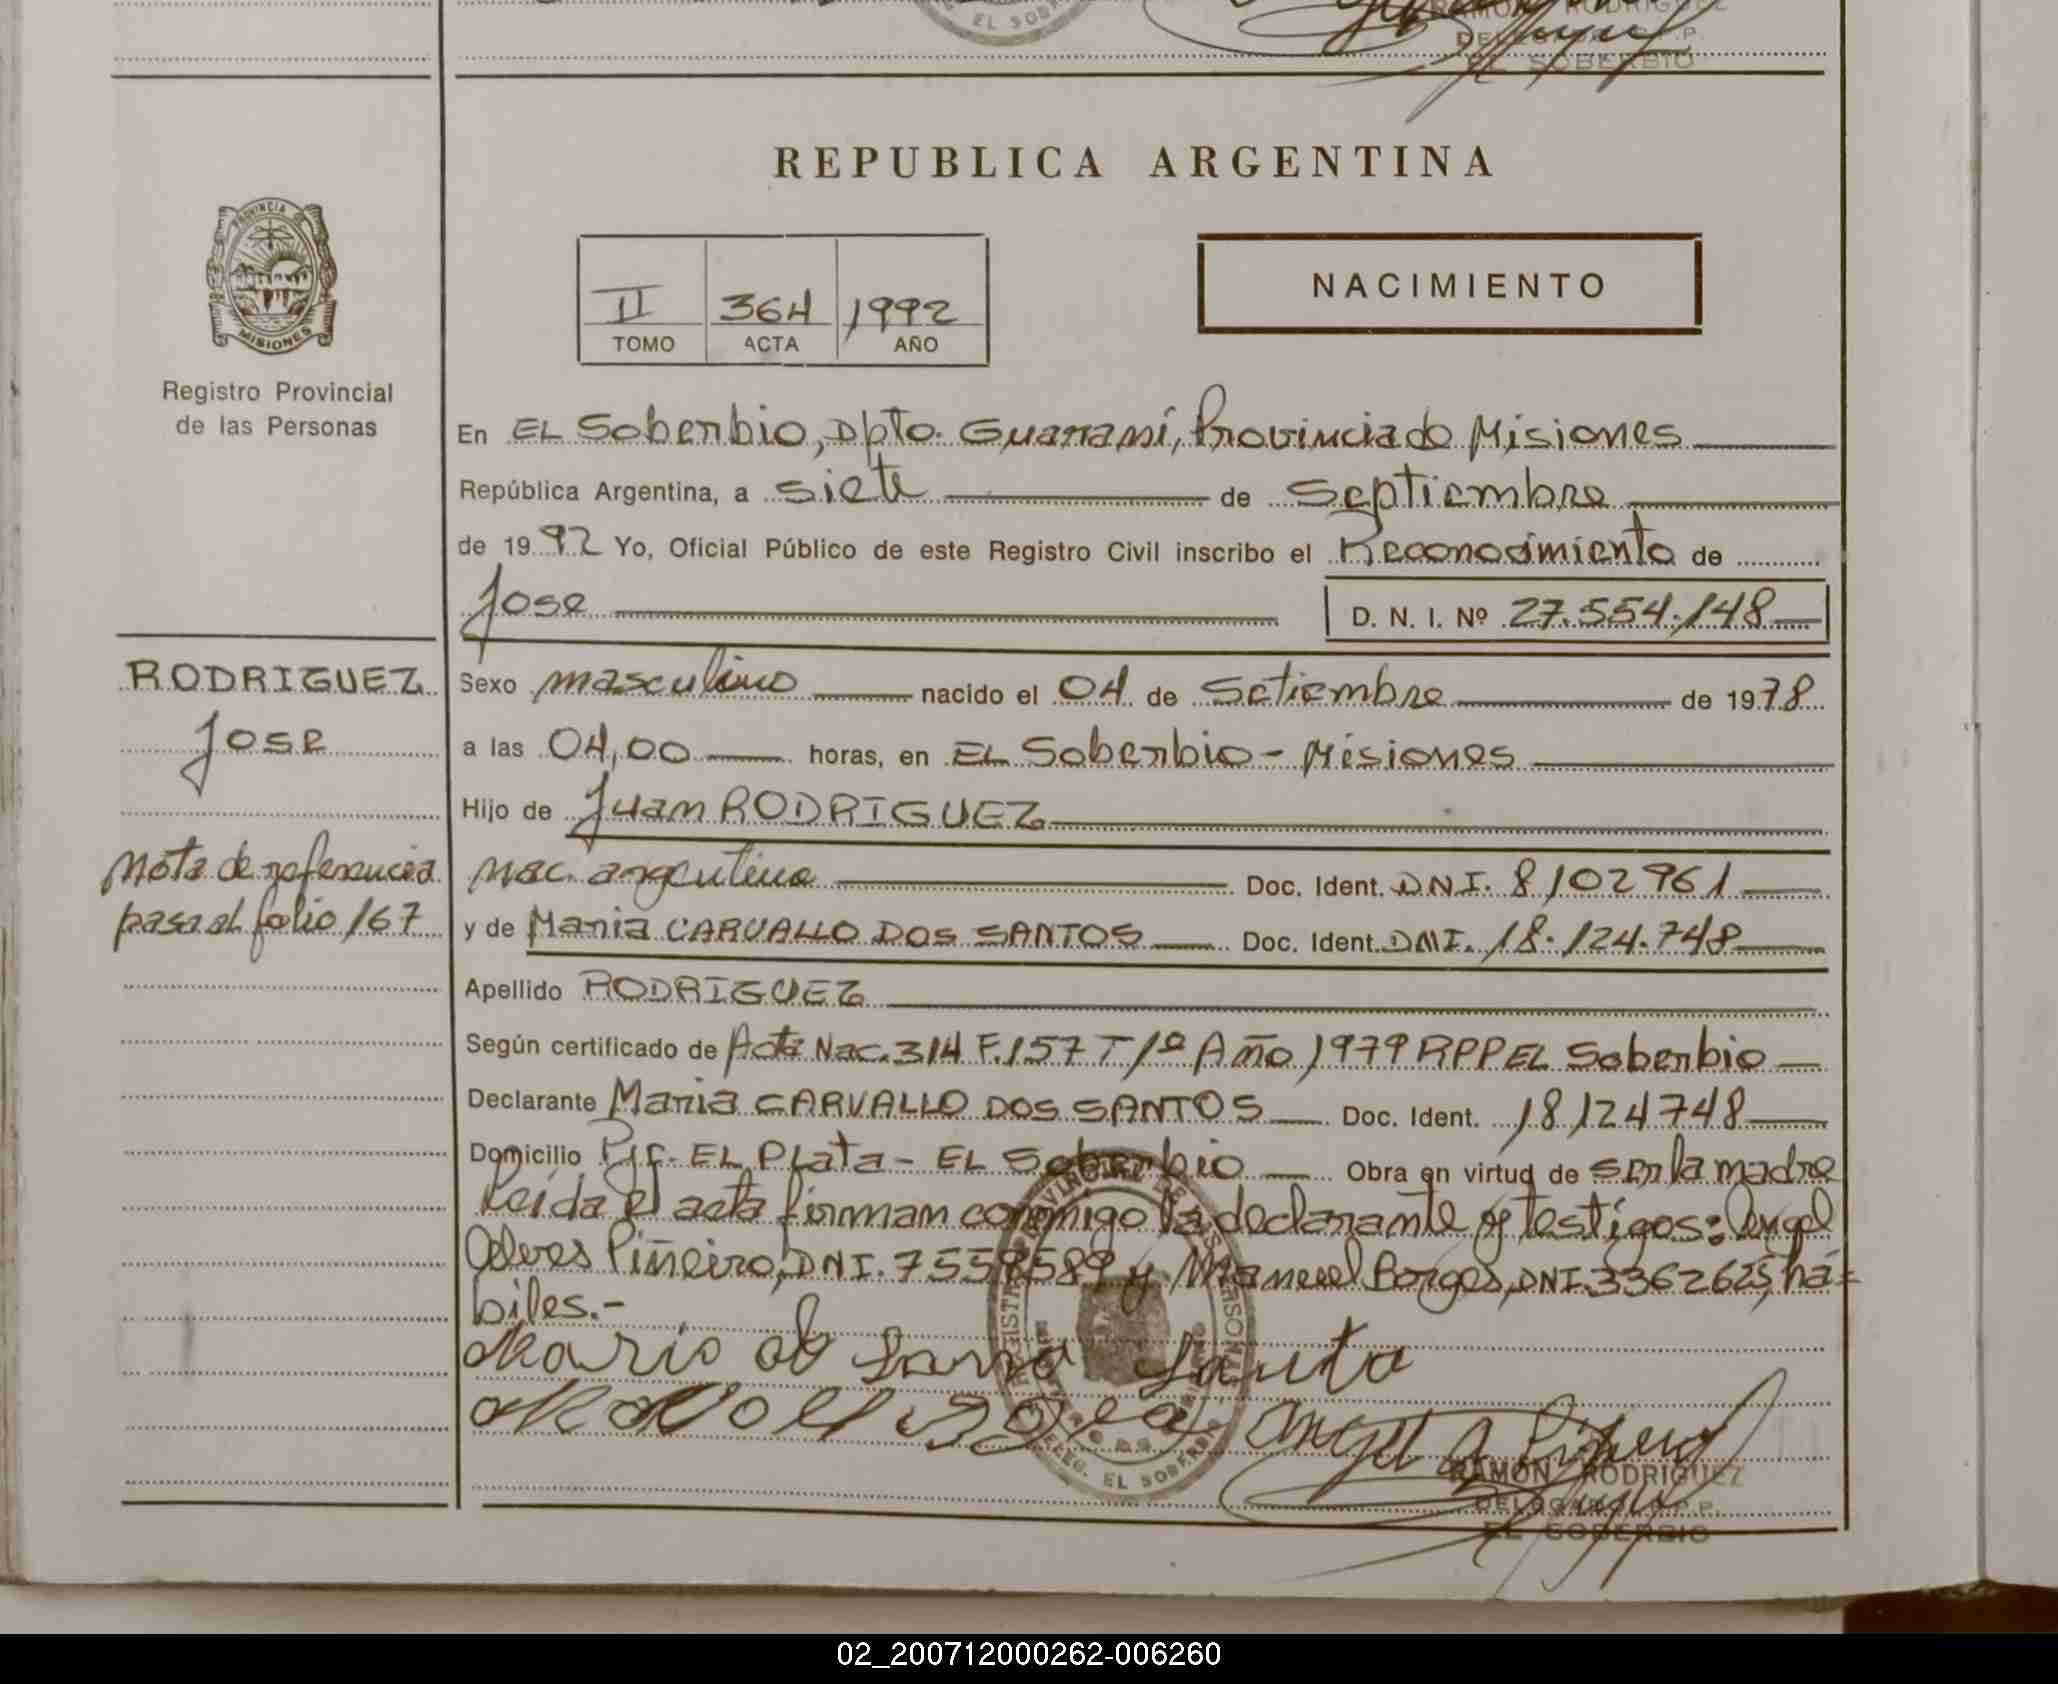 EL SOBERBIO
RAMON RODRIGUEZ
EL SOBERBIO
REPUBLICA ARGENTINA
PROVINCIA DE
MISIONES
Registro Provincial
de las Personas
II 364 1992
TOMO ACTA AÑO
NACIMIENTO
En EL Soberbio, Dpto. Guaraní, Provincia de Misiones
República Argentina, a siete de Septiembre
de 1992 Yo, Oficial Público de este Registro Civil inscribo el Reconocimiento de
Jose D. N. I. Nº 27.554.148
RODRIGUEZ
Jose
Nota de referencia
pasa al folio 167
Sexo masculino nacido el 04 de Setiembre de 1978
a las 04,00 horas, en EL Soberbio - Misiones
Hijo de Juan RODRIGUEZ
nac. argentina Doc. Ident. DNI. 8102961
y de Maria CARVALLO DOS SANTOS Doc. Ident. DNI. 18.124.748
Apellido RODRIGUEZ
Según certificado de Acta Nac. 314 F. 157 T 1º Año 1979 RPP EL Soberbio
Declarante Maria CARVALLO DOS SANTOS Doc. Ident. 18124748
Domicilio EL Plata - EL Soberbio Obra en virtud de ser la madre
Leída el acta firman conmigo la declarante y testigos: Angel
Alves Piñeiro, DNI. 7559589 y Manuel Borges, DNI. 3362625, há=
biles.-
RAMON RODRIGUEZ
DELEGADO R.P.P.
EL SOBERBIO
DELEG. EL SOBERBIO
02_200712000262-006260